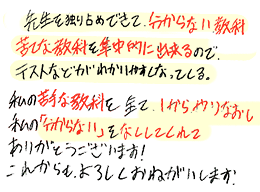 先生を独り占めできて、分からない教科
苦手な教科を集中的に出来るので、
テストなどがわかりやすくなってしる。
私の苦手な教科を全て、1からやりなおし
私の「分からない」をなくしてくれて
ありがとうございます！
これからも、よろしくおねがいします！